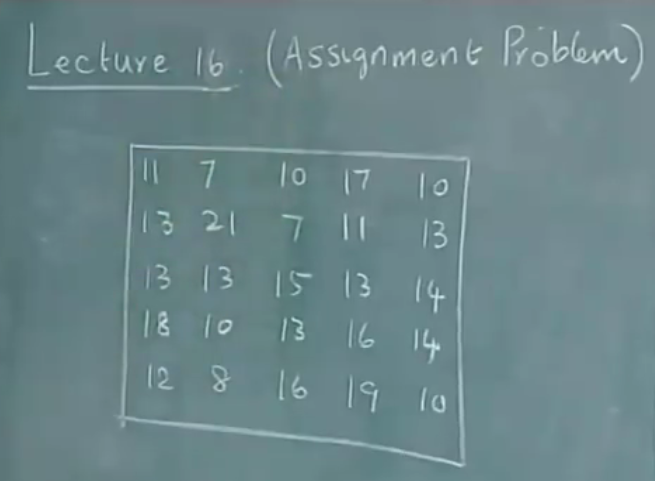 Lecture 16. (Assignment Problem)
11 7 10 17 10
13 21 7 11 13
13 13 15 13 14
18 10 13 16 14
12 8 16 19 10